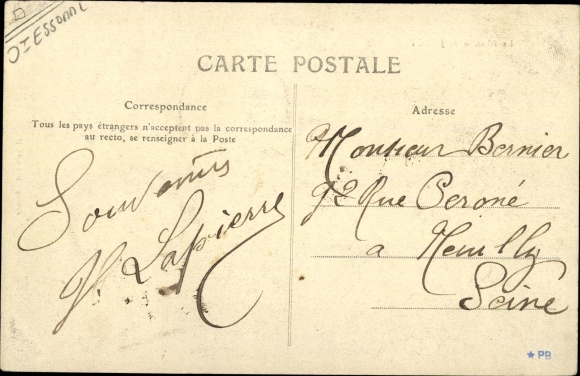 CARTE POSTALE
Correspondance
Tous les pays étrangers n'acceptent pas la correspondance
au recto, se renseigner à la Poste
Souvenirs
Lapierre
Adresse
Monsieur Bernier
Rue
a Neuilly
Seine
★ PB